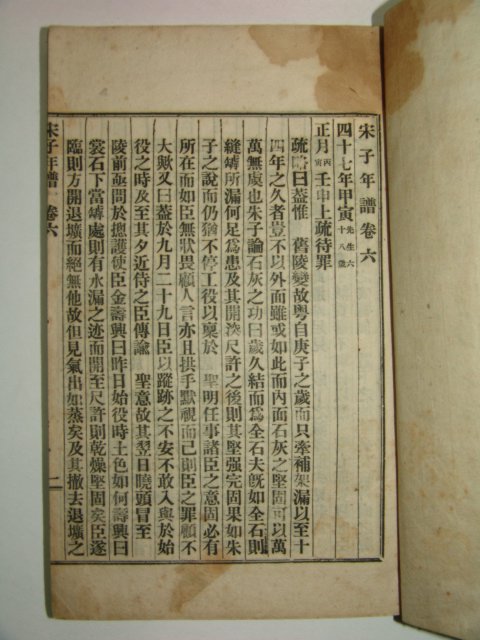 宋子年譜卷六
四十七年甲寅先生六十八歲
正月丙寅壬申上疏待罪
疏略曰蓋惟 舊陵變故粤自庚子之歲而只牽補架漏以至十
四年之久者豈不以外面雖或如此而內面石灰之堅固可以萬
萬無虞也朱子論石灰之功曰歲久結而爲全石夫旣如全石則
縫罅所漏何足爲患及其開深尺許之後則其堅强完固果如朱
子之說而仍猶不停工役以稟於 聖明任事諸臣之意固必有
所在而如臣無狀畏顧人言亦且拱手默視而已則臣之罪顧不
大歟又曰蓋於九月二十九日臣以蹤跡之不安不敢入與於始
役之時及至其夕近侍之臣傳諭 聖意故其翌日曉頭冒至
陵前亟問於摠護使臣金壽興曰昨日始役時土色如何壽興曰
裳石下當罅處則有水漏之迹而開至尺許則乾燥堅固矣臣遂
臨則方開退壙而絕無他故但見氣出如蒸矣及其撤去退壙之
宋子年譜 卷六
一